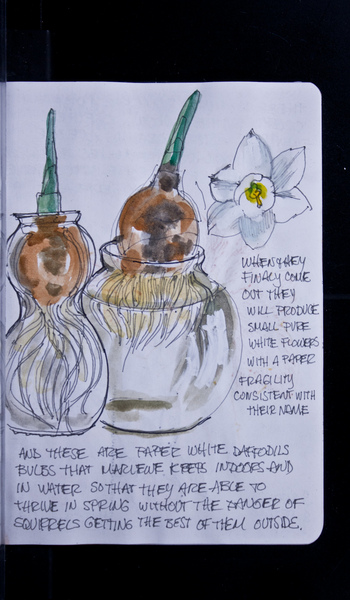 WHEN THEY
FINALY COME
OUT THEY
WILL PRODUCE
SMALL PURE
WHITE FLOWERS
WITH A PAPER
FRAGILITY
CONSISTENT WITH
THEIR NAME
AND THESE ARE PAPER WHITE DAFFODILS
BULBS THAT MARLENE KEEPS INDOORS AND
IN WATER SO THAT THEY ARE ABLE TO
THRIVE IN SPRING WITHOUT THE DANGER OF
SQUIRRELS GETTING THE BEST OF THEM OUTSIDE.